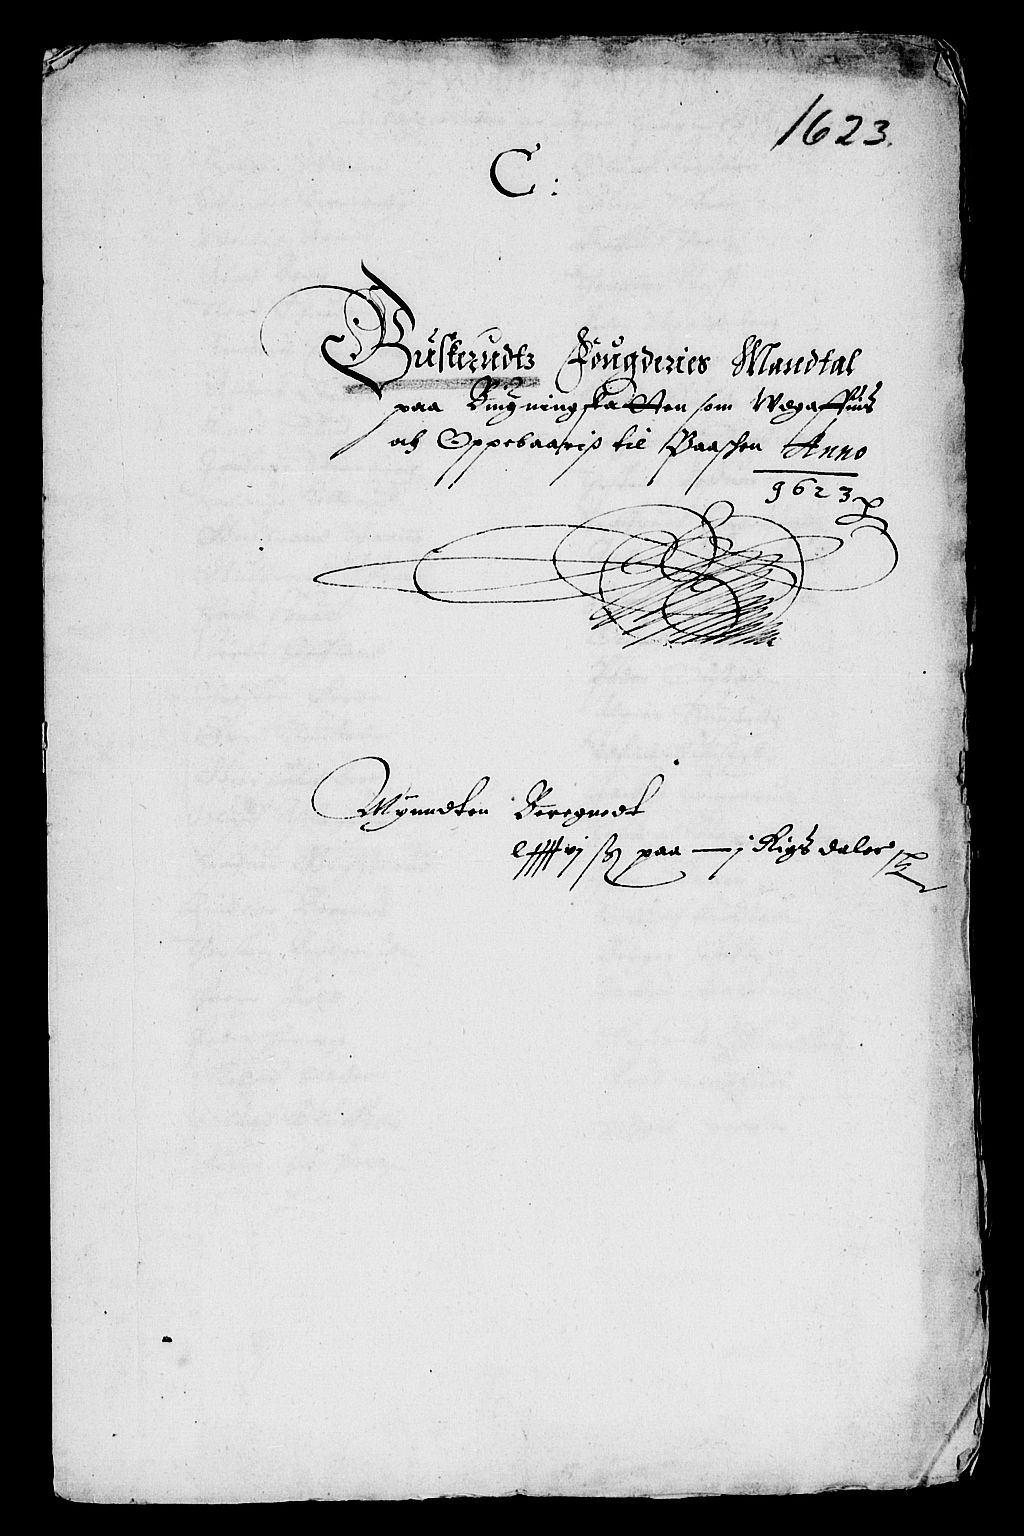 1623.
C:
Buskerudtz Fougderies Mandtal
paa Bygningskatten som Udgaffuis
och Oppebaariß til Paaschen Anno
1623
Mynndten Beregnedt
paa — j Rigs daler